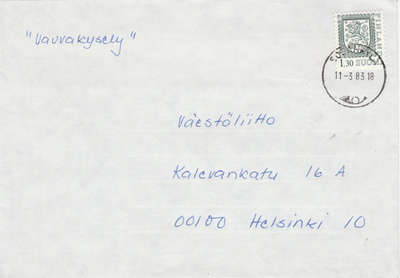 "Vauvakysely"
FINLAND
1.30 SUOMI
11-3 83 18
Väestöliitto
Kalevankatu 16 A
00100 Helsinki 10